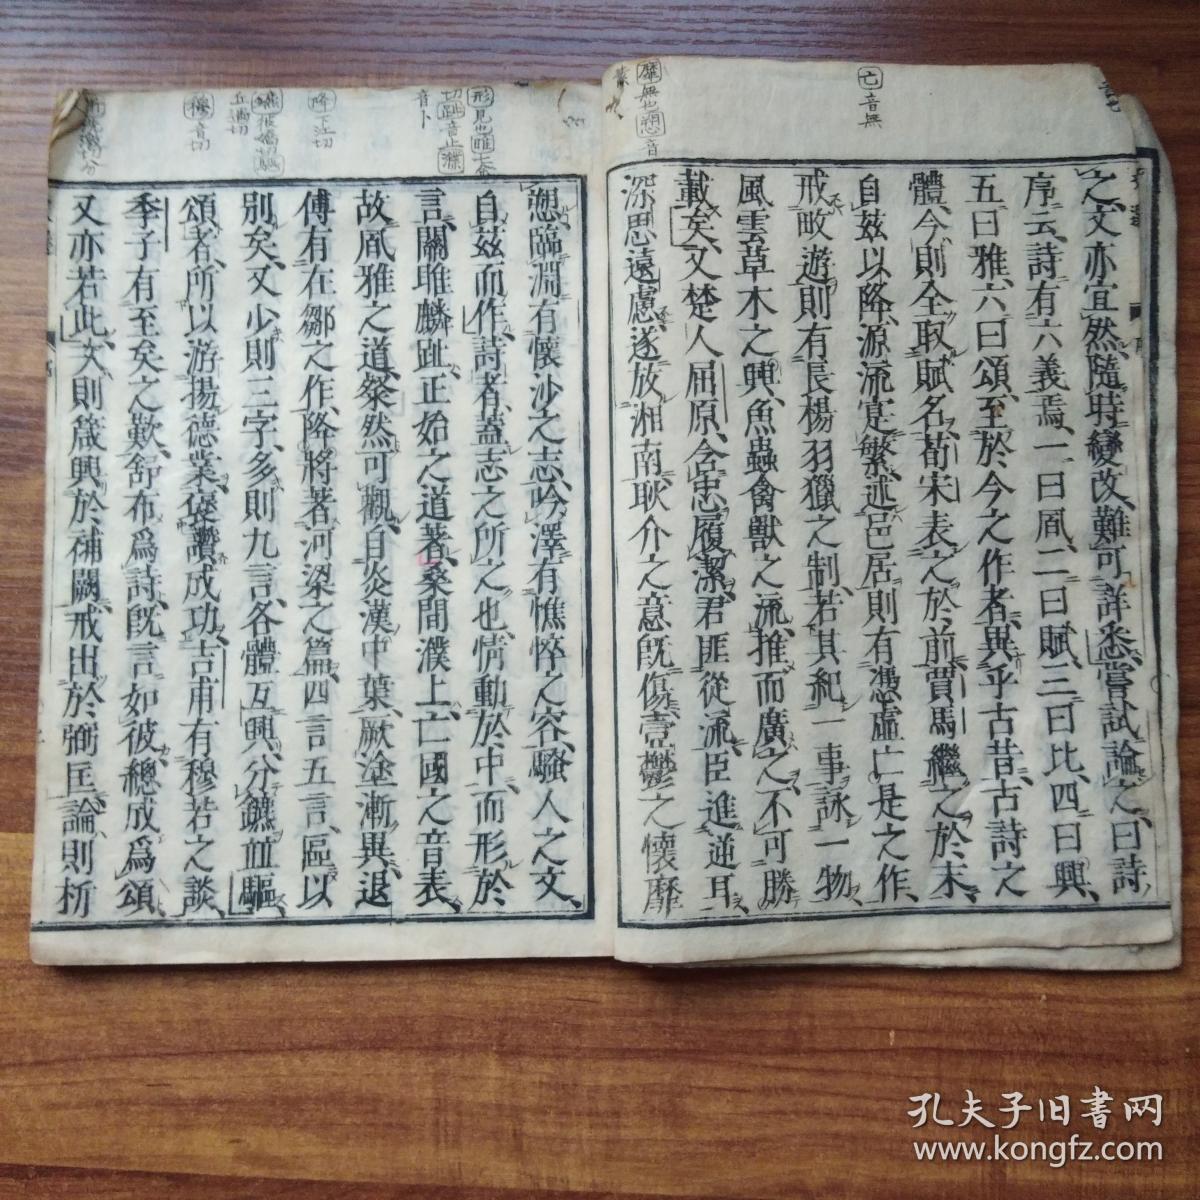 亡音無
靡無也愬音
之文亦宜然隨時變改難可詳悉嘗試論之曰詩
序云詩有六義焉一曰風二曰賦三曰比四曰興
五曰雅六曰頌至於今之作者異乎古昔古詩之
體今則全取賦名荀宋表之於前賈馬繼之於末
自茲以降源流寔繁述邑居則有憑虛亡是之作
戒畋遊則有長楊羽獵之制若其紀一事詠一物
風雲草木之興魚蟲禽獸之流推而廣之不可勝
載矣又楚人屈原含忠履潔君匪從流臣進逆耳
深思遠慮遂放湘南耿介之意既傷壹鬱之懷靡
形見也雎七余
切趾音止濮
音卜
降下江切
鑣彼驕切驅
丘遇切
穆音切
愬臨淵有懷沙之志吟澤有憔悴之容騷人之文
自茲而作詩者蓋志之所之也情動於中而形於
言關雎麟趾正始之道著桑間濮上亡國之音表
故風雅之道粲然可觀自炎漢中葉厥塗漸異退
傅有在鄒之作降將著河梁之篇四言五言區以
別矣又少則三字多則九言各體互興分鑣並驅
頌者所以游揚德業褒讚成功吉甫有穆若之談
季子有至矣之歎舒布為詩既言如彼總成為頌
又亦若此次則箴興於補闕戒出於弼匡論則析
孔夫子旧书网
www.kongfz.com